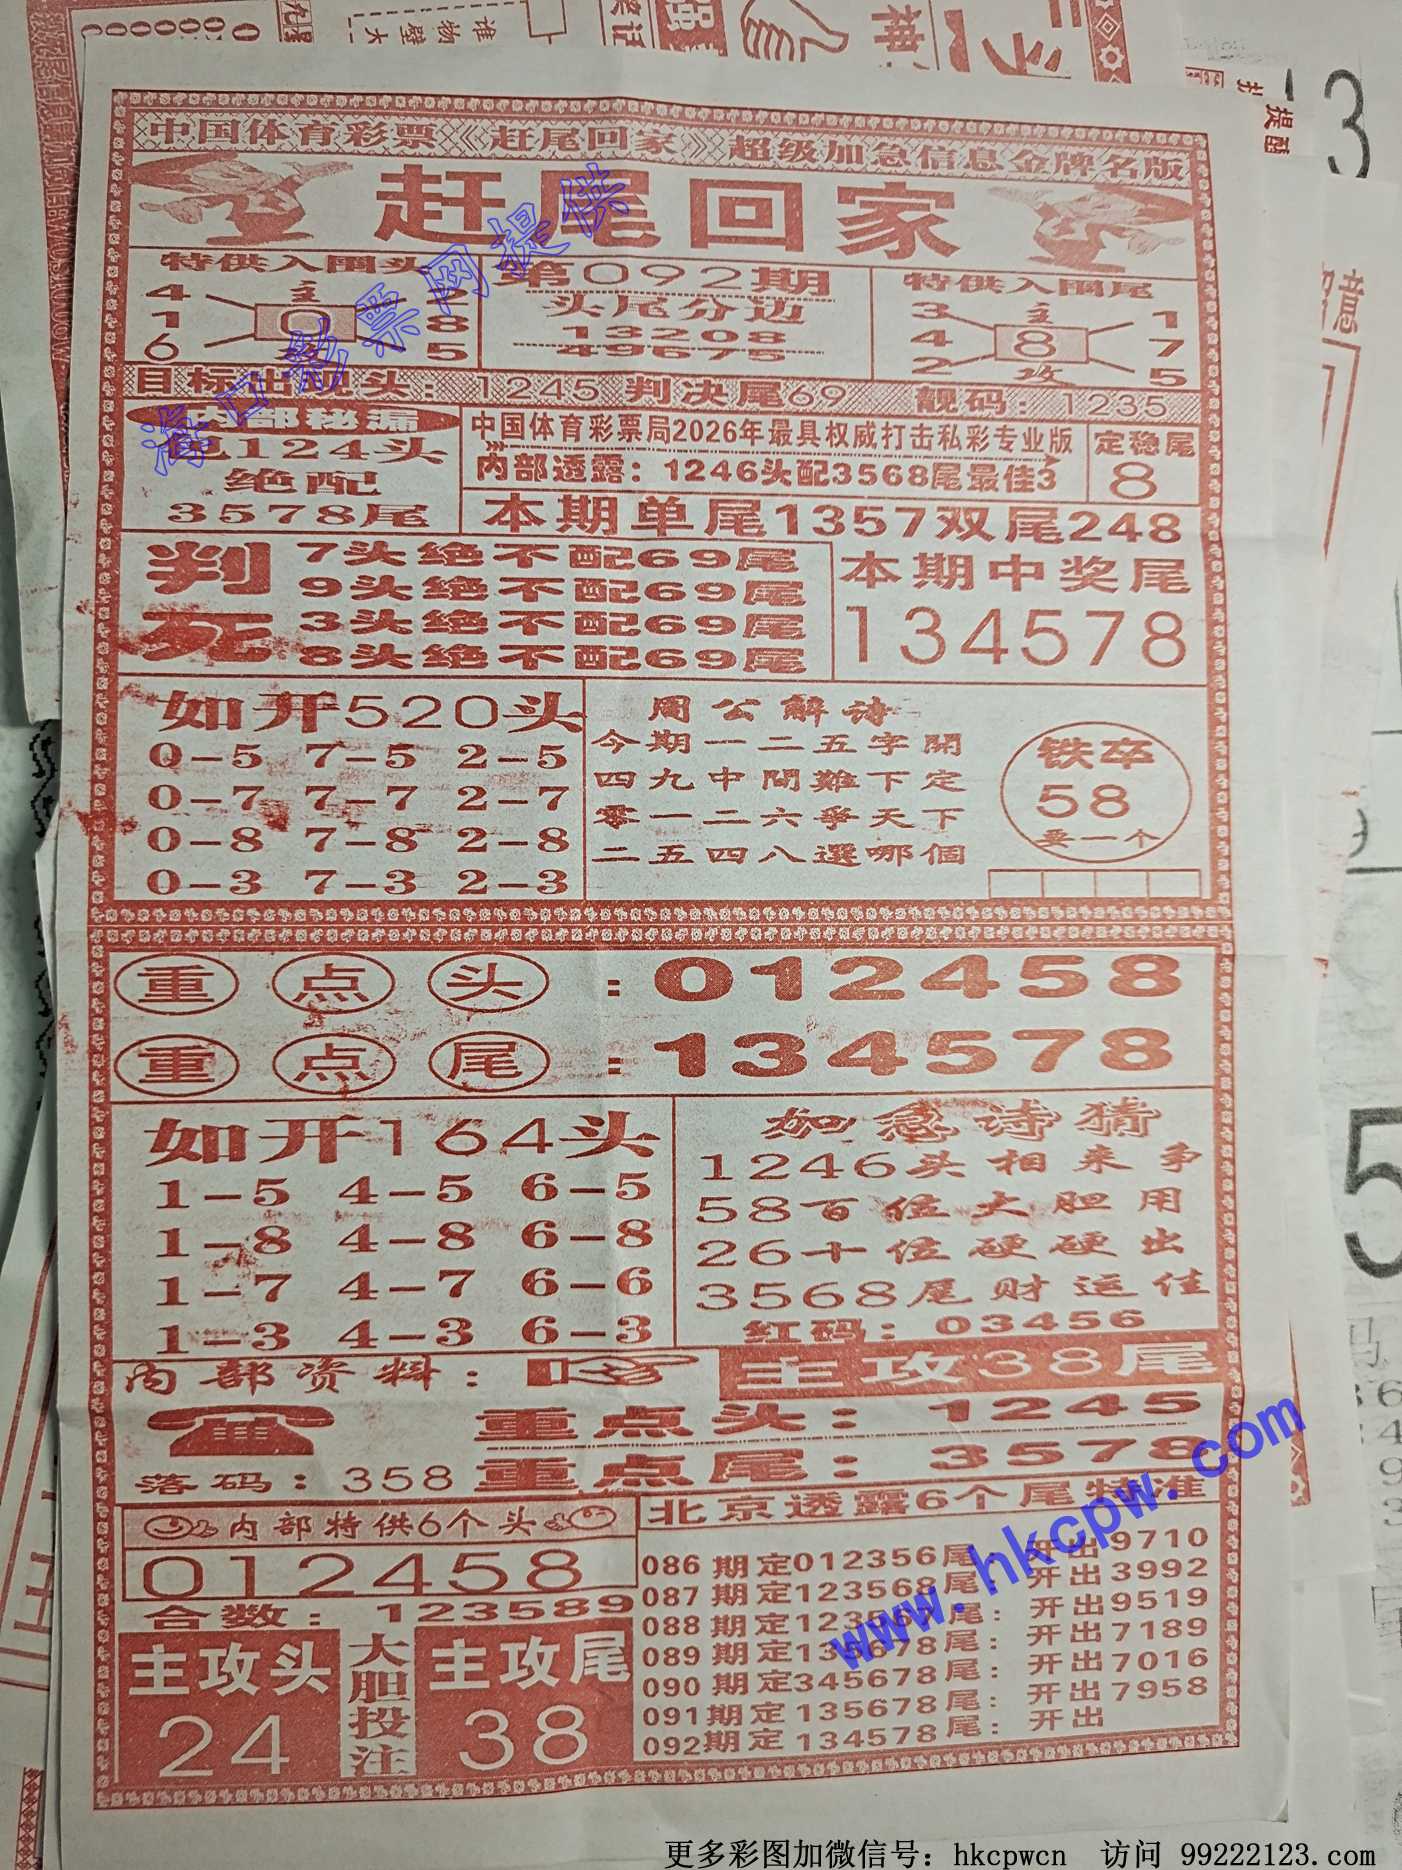 中国体育彩票《赶尾回家》超级加急信息金牌名版
赶尾回家
特供入围头
4 主 2
1 0 8
6 攻 5
第092期
头尾分边
13208
49675
特供入围尾
3 主 1
4 8 7
2 攻 5
目标出现头：1245 判决尾69 靓码：1235
内部秘漏
包124头
绝配
3578尾
中国体育彩票局2026年最具权威打击私彩专业版
内部透露：1246头配3568尾最佳3
定稳尾
8
本期单尾1357双尾248
判死
7头绝不配69尾
9头绝不配69尾
3头绝不配69尾
8头绝不配69尾
本期中奖尾
134578
如开520头
0-5 7-5 2-5
0-7 7-7 2-7
0-8 7-8 2-8
0-3 7-3 2-3
周公解诗
今期一二五字開
四九中間難下定
零一二六爭天下
二五四八選哪個
铁卒
58
要一个
重点头：012458
重点尾：134578
如开164头
1-5 4-5 6-5
1-8 4-8 6-8
1-7 4-7 6-6
1-3 4-3 6-3
加急诗猜
1246头相来争
58百位大胆用
26十位硬硬出
3568尾财运佳
红码：03456
内部资料：
主攻38尾
重点头：1245
落码：358
重点尾：3578
内部特供6个头
012458
合数：123589
主攻头
24
大胆投注
主攻尾
38
北京透露6个尾特准
086期定012356尾：开出9710
087期定123568尾：开出3992
088期定123967尾：开出9519
089期定135678尾：开出7189
090期定345678尾：开出7016
091期定135678尾：开出7958
092期定134578尾：开出
海口彩票网提供
www.hkcpw.com
更多彩图加微信号：hkcpwcn 访问 99222123.com